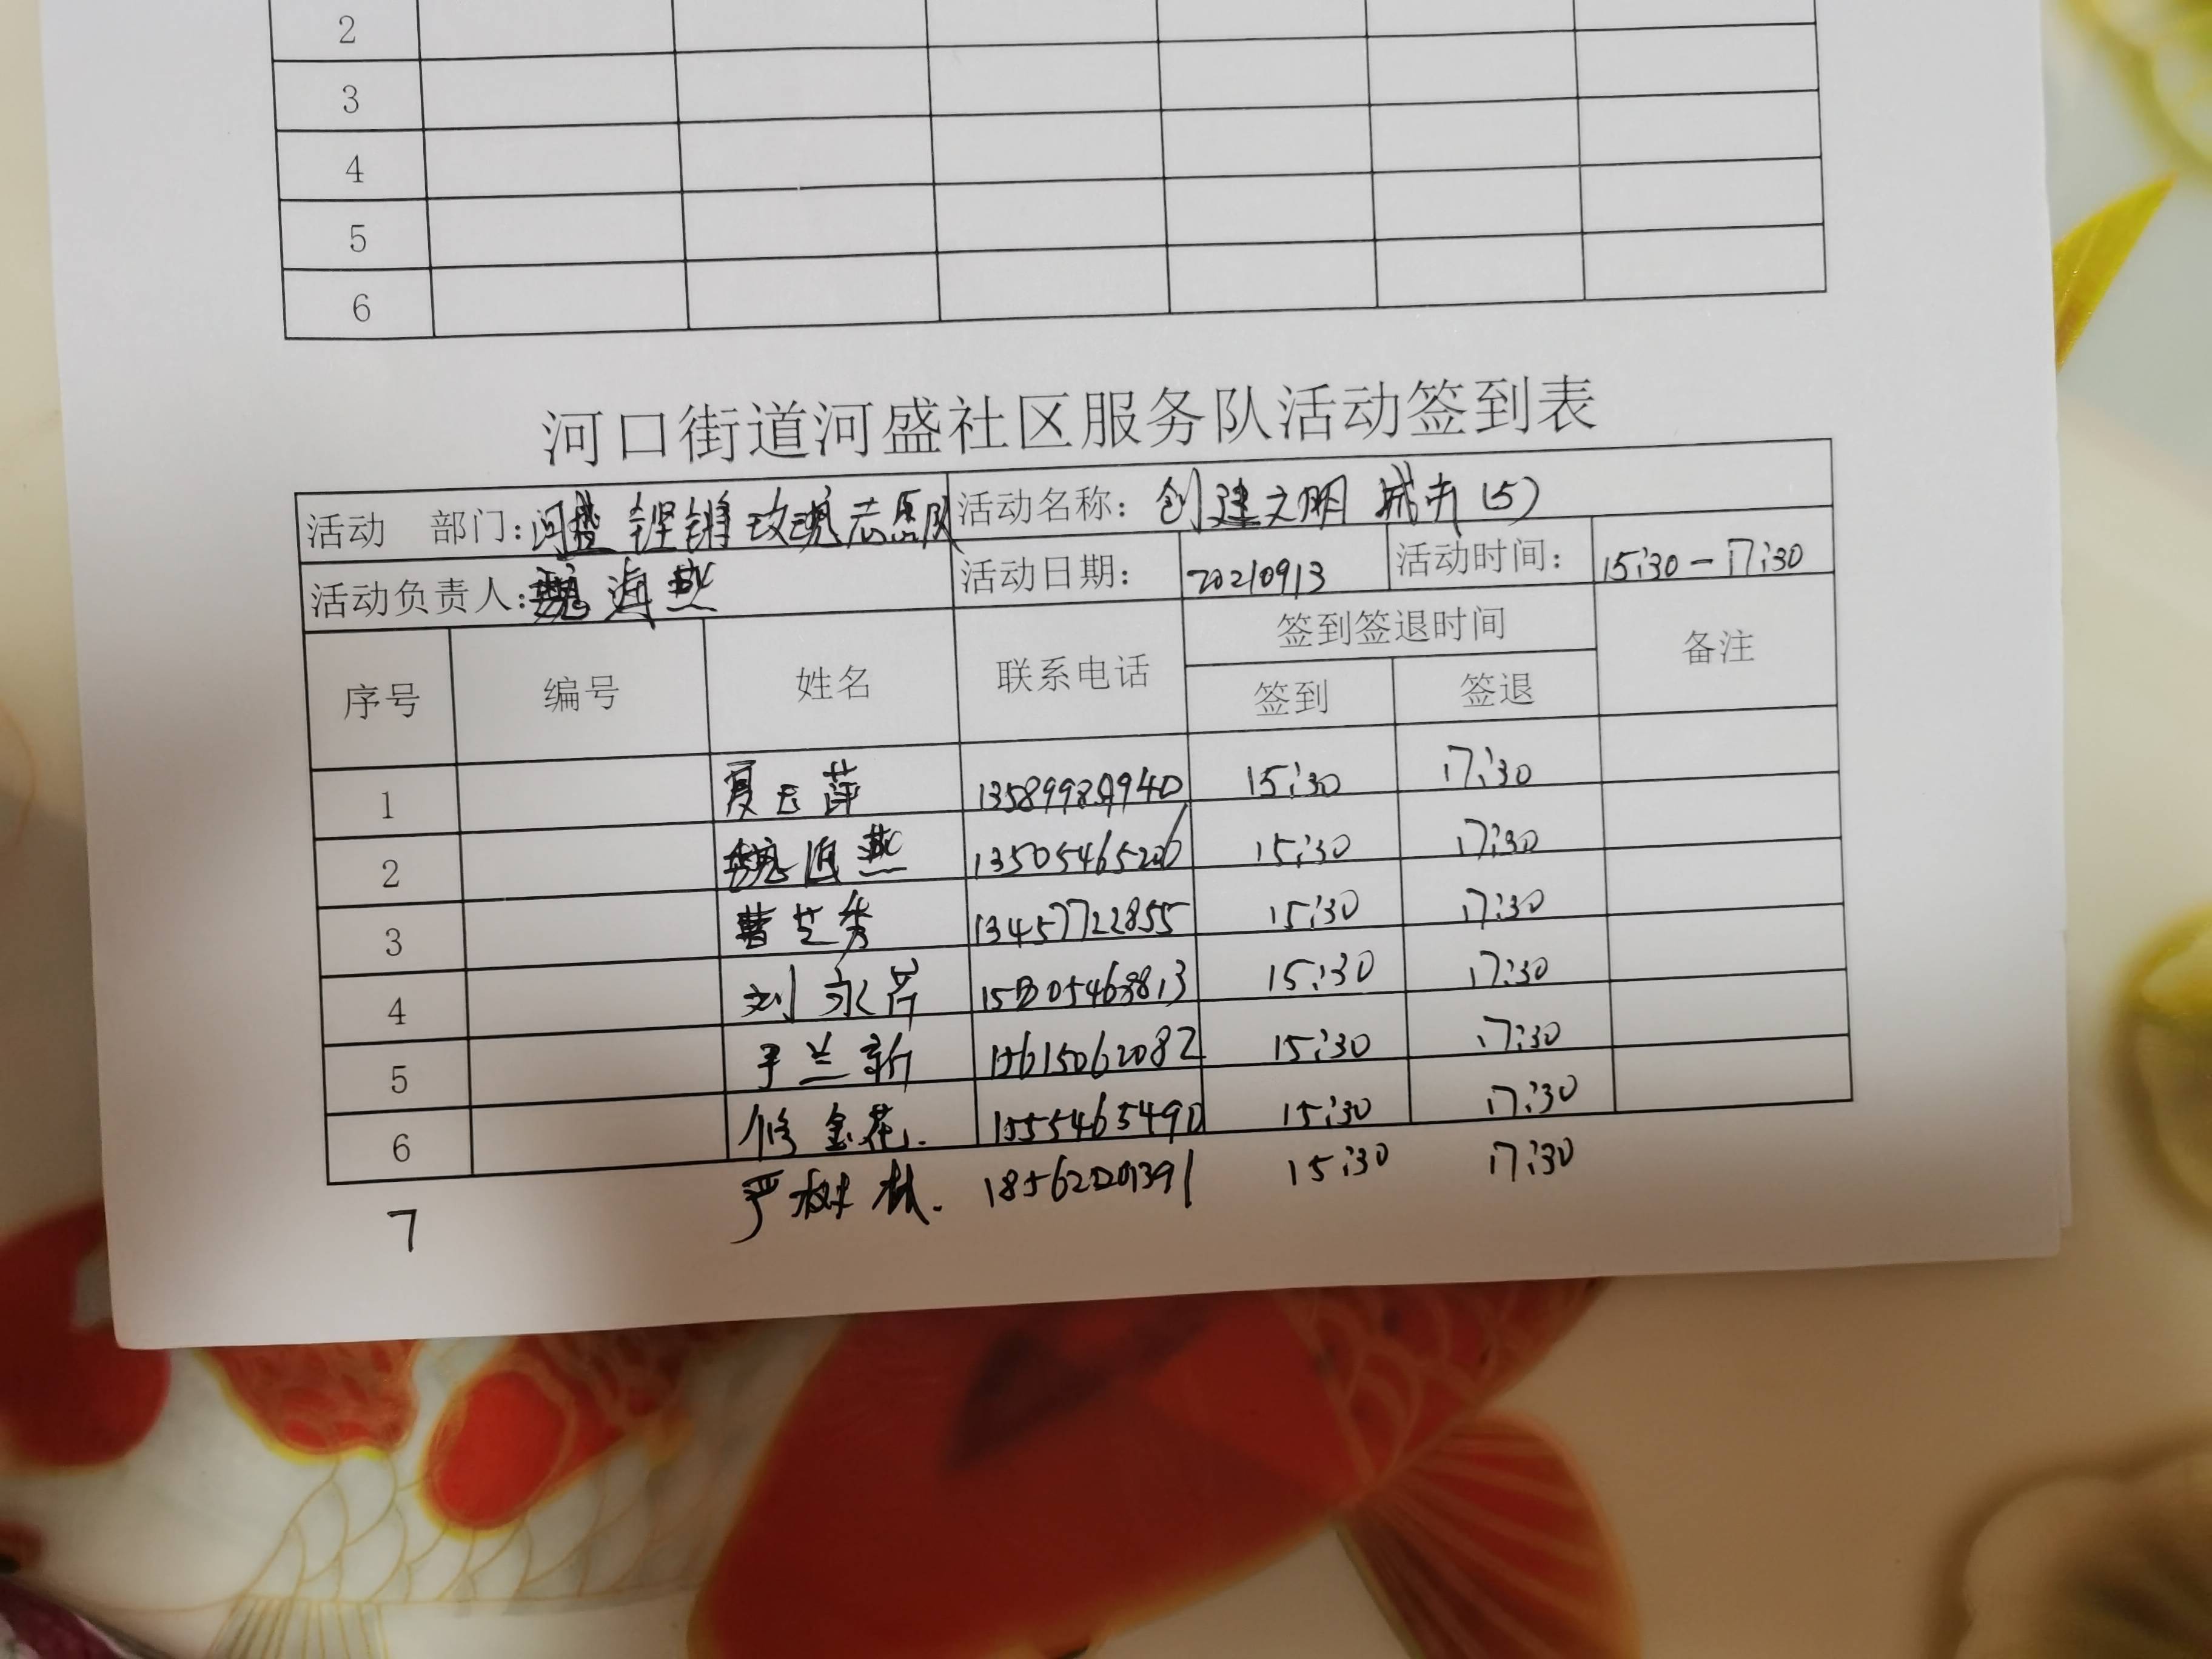 2
3
4
5
6
河口街道河盛社区服务队活动签到表
活动 部门:河盛铿锵玫瑰志愿队 活动名称: 创建文明城市(5)
活动负责人:魏海燕 活动日期: 20210913 活动时间: 15:30-17:30
序号 编号 姓名 联系电话 签到签退时间 备注
签到 签退
1 夏云萍 15:30 17:30
2 魏海燕 13505465206 15:30 17:30
3 曹芝秀 13457722855 15:30 17:30
4 刘永芹 15:30 17:30
5 于兰新 15615062082 15:30 17:30
6 修金花. 1555465490 15:30 17:30
7 严树林. 15:30 17:30